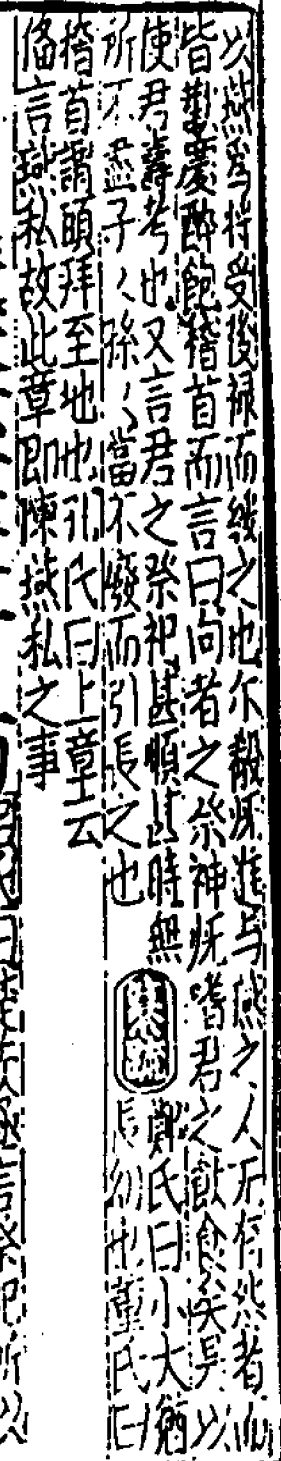 以燕爲将受後禄而綏之也尔殽既進与燕之人无有怨者而
皆歡慶醉飽稽首而言曰向者之祭神既嗜君之飲食矣是以
使君壽考也又言君之祭祀甚順甚時無
所不盡子〻孫〻當不廢而引長之也
纂疏
鄭氏曰小大猶
長幼也董氏曰
稽首謂頭拜至地也孔氏曰上章云
俻言燕私故此章即陳燕私之事